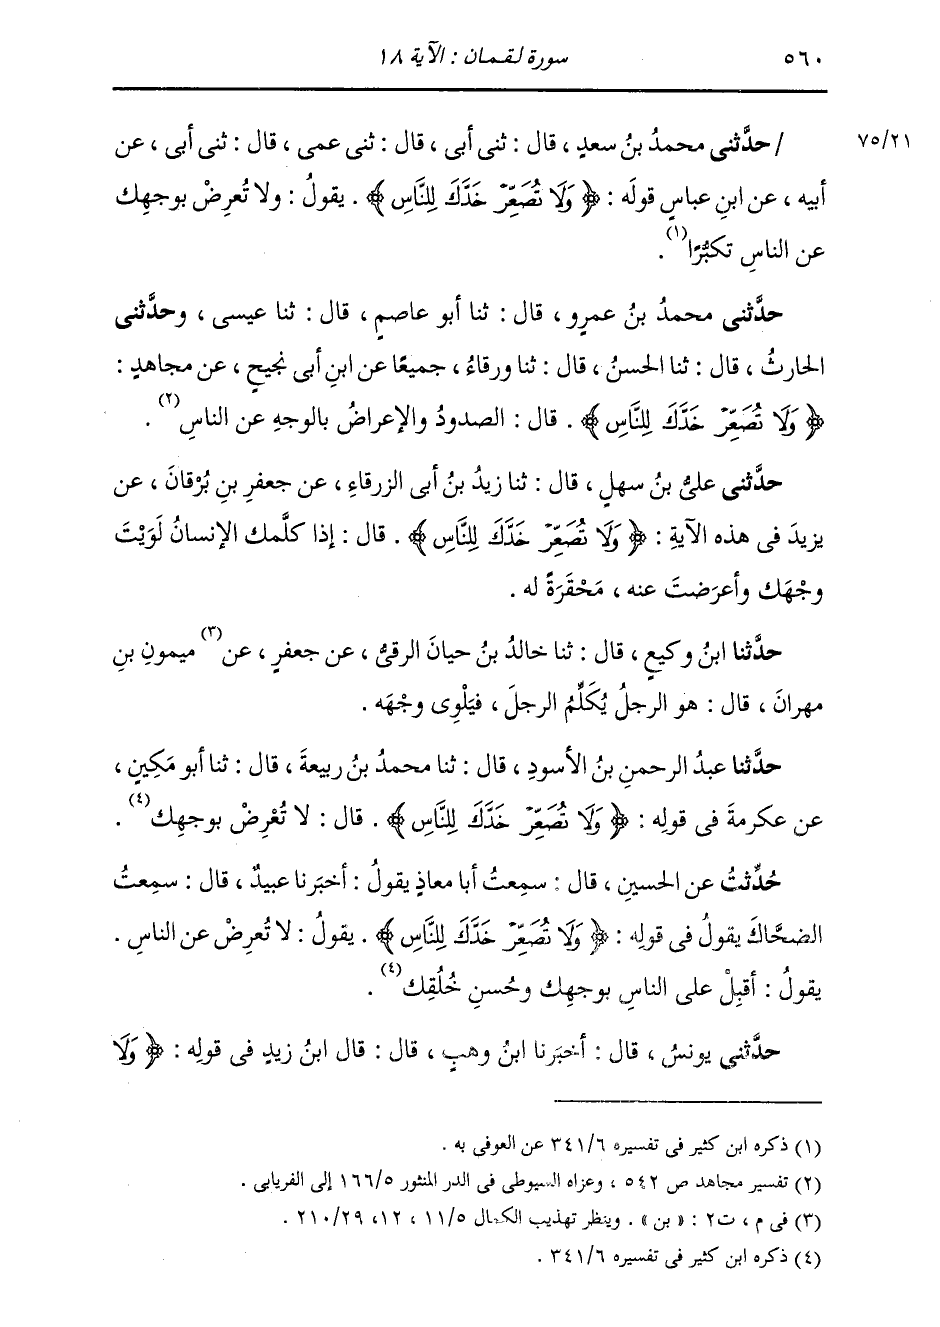 ٥٦٠ سورة لقمان : الآية ١٨
٧٥/٢١ / حدَّثنى محمدُ بنُ سعدٍ ، قال : ثنى أبى ، قال : ثنى عمى ، قال : ثنى أبى ، عن
أبيه ، عن ابنِ عباسٍ قولَه : ﴿ وَلَا تُصَعِّرْ خَدَّكَ لِلنَّاسِ ﴾ . يقولُ : ولا تُعرِضْ بوجهِك
عن الناسِ تكبُّرًا(١) .
حدَّثنى محمدُ بنُ عمرٍو ، قال : ثنا أبو عاصمٍ ، قال : ثنا عيسى ، وحدَّثنى
الحارثُ ، قال : ثنا الحسنُ ، قال : ثنا ورقاءُ ، جميعًا عن ابنِ أبى نجيحٍ ، عن مجاهدٍ :
﴿ وَلَا تُصَعِّرْ خَدَّكَ لِلنَّاسِ ﴾ . قال : الصدودُ والإعراضُ بالوجهِ عن الناسِ(٢) .
حدَّثنى علىُّ بنُ سهلٍ ، قال : ثنا زيدُ بنُ أبى الزرقاءِ ، عن جعفرِ بنِ بُرْقانَ ، عن
يزيدَ فى هذه الآيةِ : ﴿ وَلَا تُصَعِّرْ خَدَّكَ لِلنَّاسِ ﴾ . قال : إذا كلَّمك الإنسانُ لَوَيْتَ
وجْهَك وأعرَضتَ عنه ، مَحْقَرَةً له .
حدَّثنا ابنُ وكيعٍ ، قال : ثنا خالدُ بنُ حيانَ الرقىُّ ، عن جعفرٍ ، عن(٣) ميمونِ بنِ
مهرانَ ، قال : هو الرجلُ يُكَلِّمُ الرجلَ ، فيَلْوِى وجْهَه .
حدَّثنا عبدُ الرحمنِ بنُ الأسودِ ، قال : ثنا محمدُ بنُ ربيعةَ ، قال : ثنا أبو مَكِينٍ ،
عن عكرمةَ فى قولِه : ﴿ وَلَا تُصَعِّرْ خَدَّكَ لِلنَّاسِ ﴾ . قال : لا تُعْرِضْ بوجهِك(٤) .
حُدِّثتُ عن الحسينِ ، قال : سمِعتُ أبا معاذٍ يقولُ : أخبَرنا عبيدٌ ، قال : سمِعتُ
الضحَّاكَ يقولُ فى قولِه : ﴿ وَلَا تُصَعِّرْ خَدَّكَ لِلنَّاسِ ﴾ . يقولُ : لا تُعرِضْ عن الناسِ .
يقولُ : أقبِلْ على الناسِ بوجهِك وحُسنِ خُلُقِك(٤) .
حدَّثنى يونسُ ، قال : أخبَرنا ابنُ وهبٍ ، قال : قال ابنُ زيدٍ فى قولِه : ﴿ وَلَا
(١) ذكره ابن كثير فى تفسيره ٣٤١/٦ عن العوفى به .
(٢) تفسير مجاهد ص ٥٤٢ ، وعزاه السيوطى فى الدر المنثور ١٦٦/٥ إلى الفريابى .
(٣) فى م ، ت٢ : « بن » . وينظر تهذيب الكمال ١١/٥ ، ١٢، ٢١٠/٢٩ .
(٤) ذكره ابن كثير فى تفسيره ٣٤١/٦ .